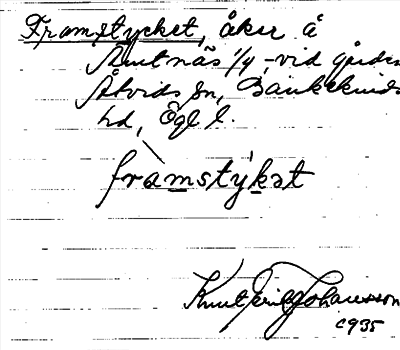 Framstycket, åker å
Slutnäs 1/4 - vid gården
Åtvids sn, Bankekinds
hd, Ögl l.
framstýkət
Knut Erik Johansson
1935